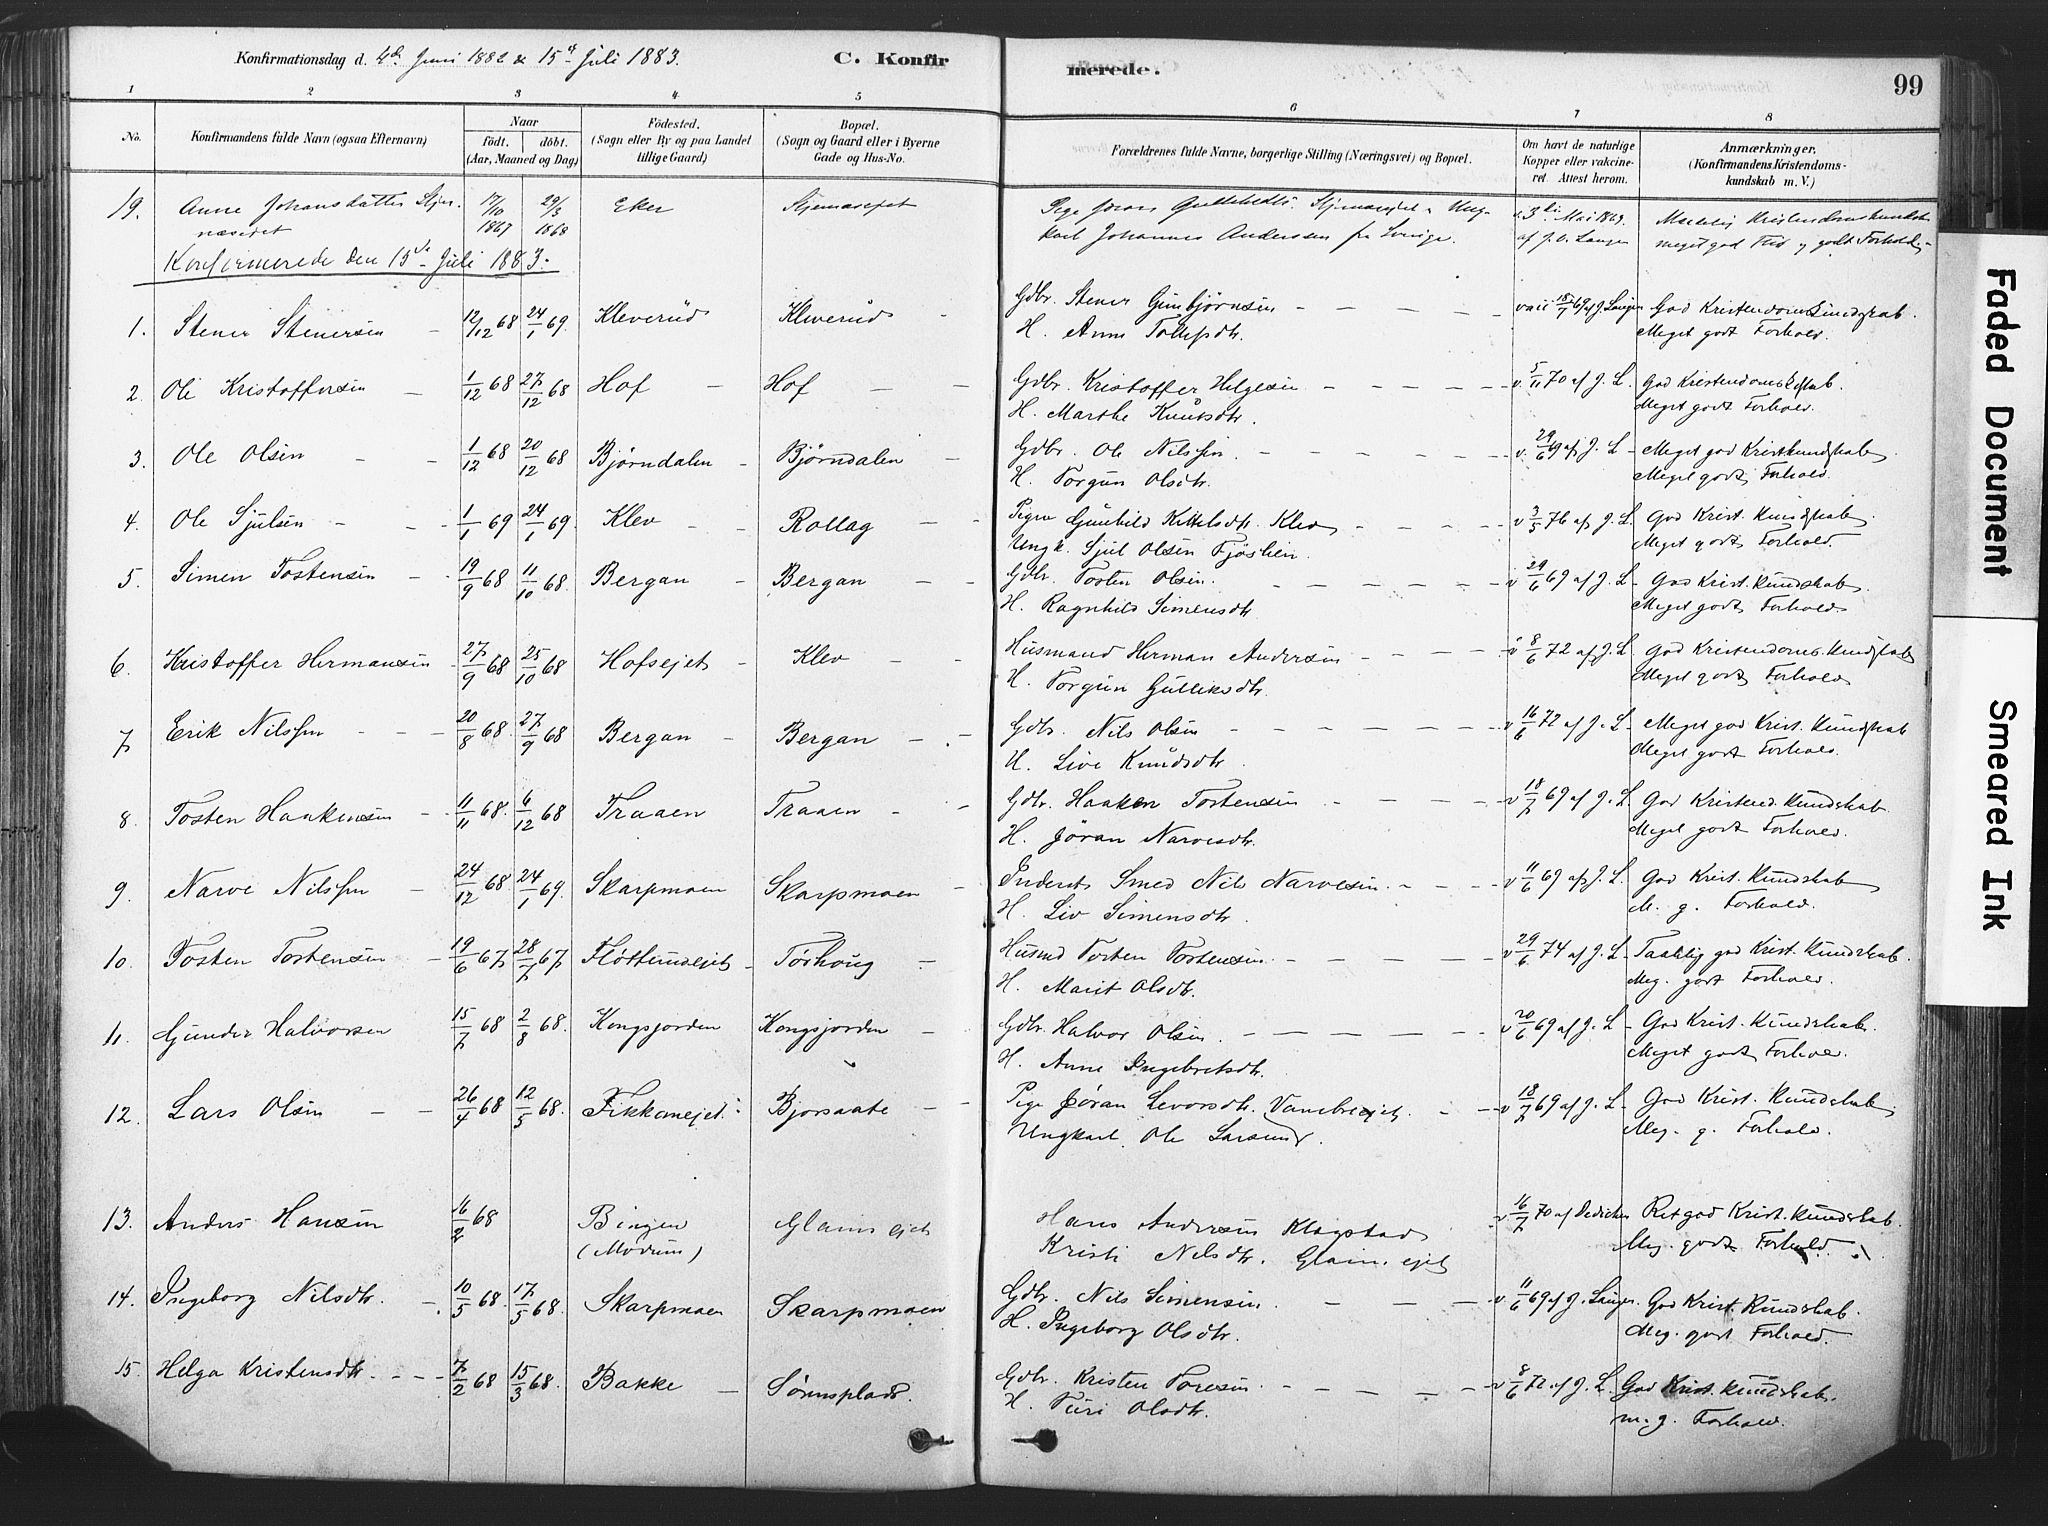 Konfirmationsdag d. 4de Juni 1882 & 15de Juli 1883. C. Konfirmerede. 99
1 2 3 4 5 6 7 8
No. Konfirmandens fulde Navn (ogsaa Efternavn) Naar født. døbt. (Aar, Maaned og Dag) Fødested. (Sogn eller By og paa Landet tillige Gaard) Bopæl. (Sogn og Gaard eller i Byerne Gade og Hus-No. Forældrenes fulde Navne, borgerlige Stilling (Næringsvei) og Bopæl. Om havt de naturlige Kopper eller vakcineret. Attest herom. Anmærkninger. (Konfirmandens Kristendomskundskab m. V.)
19. Anne Johansdatter 17/10 1867 29/3 1868 Eker Pige Ung-
karl Johannes Andersen fra Sverige. af J. v. Langen meget god Flid og godt Forhold
Konfirmerede den 15de Juli 1883.
1. Stener Stenersen 12/12 68 24/1 69. Kleverud Kleverud Gdbr. Stener Gunbjørnsen vacc 18/7 69 af J. Langen God Kristendomskundskab.
H. Anne Tollefsdtr. Meget godt Forhold.
2. Ole Kristoffersen 1/12 68 27/12 68 Hof Hof Gdbr. Kristoffer Helgesen v. 5/11 70 af J. L. God Kristendomskdskab.
H. Marthe Knutsdtr. Meget godt Forhold.
3. Ole Olsen 1/12 68 20/12 68 Bjørndalen Bjørndalen Gdbr. Ole Nilssen v. 29/6 69 af J. L Meget god Kristkundskab.
H. Torgun Olsdtr. Meget godt Forhold.
4. Ole Sjulsen 1/1 69 24/1 69. Klev Rollag Pigen Gunhild Kittelsdtr. Klev v 3/5 76 af J. L. God Krist. Kundskab.
Ungk. Sjul Olsen Fjøslien. Meget godt Forhold.
5. Simen Tostensen 19/9 68 11/10 68 Bergan Bergan Gdbr. Tosten Olsen. v 29/6 69 af J. L God Krist. Kundskab.
H. Ragnhild Simensdtr. Meget godt Forhold.
6. Kristoffer Hermansen 27/9 68 25/10 68 Hofsejet Klev Husmand Herman Andersen v 8/6 72 af J. L God Kristendoms Kundskab
H. Torgun Gulliksdtr. Meget godt Forhold
7. Erik Nilssen 20/8 68. 27/9 68 Bergan Bergan Gdbr. Nils Olsen v 16/6 72 af J. L Meget god Krist. Kundskab
H. Live Knudsdtr. Meget godt Forhold.
8. Tosten Haakensen 11/11 68. 6/12 68 Traaen Traaen Gdbr. Haaken Tostensen v 18/7 69 af J. L. God Kristend. Kundskab.
H. Jøran Narvesdtr. Meget godt Forhold.
9. Narve Nilssen 24/12 68 24/1 69. Skarpmoen Skarpmoen Inderst Smed Nils Narvesen. v 11/6 69 af J. L. God Krist. Kundskab
H. Liv Simensdtr. M. g. Forhold.
10. Tosten Tostensen 19/6 67 28/7 67. Fløtterudejet Tørhoug Husmd Tosten Tostensen v 29/6 74 af J. L Taalelig god Krist. Kundskab.
H. Marit Olsdtr. Meg. godt Forhold.
11. Gunder Halvorsen 15/7 68 2/8 68. Kongsjorden Kongsjorden Gdbr. Halvor Olsen. v 20/6 69 af J. L God Krist. Kundskab.
H. Anne Ingebretsdtr. Meget godt Forhold.
12. Lars Olsen 26/4 68 12/5 68. Fikkanejet Bjorsaate Pige Jøran Levorsdtr. v 18/7 69 af J. L God Krist. Kundskab
Ungkarl. Ole Larsen. Meg. g. Forhold.
13. Anders Hansen 16/2 68 Bingen Glaimsejet Hans Andersen Klagstad v 16/7 70 af Dedichen Ret god Krist. Kundskab.
(Modum) Kristi Nilsdtr. Glaim.ejet Meg. godt Forhold.
14. Ingeborg Nilsdtr. 10/5 68. 17/5 68. Skarpmoen Skarpmoen Gdbr. Nils Simensen v. 11/6 69 af J. Langen God Krist. Kundskab.
H. Ingeborg Olsdtr. Meg. godt Forhold.
15. Helga Kristensdtr. 7/2 68 15/3 68. Bakke Sørensplads. Gdbr. Kristen Toresen. v 8/6 72 af J. L. God Krist. Kundskab.
H. Turi Olsdtr. m. g. Forhold.
Faded Document
Smeared Ink